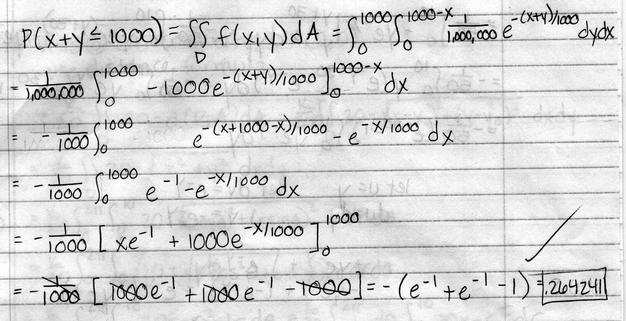 P(x+y ≤ 1000) = ∬_D f(x,y) dA = ∫_0^1000 ∫_0^{1000-x} 1/1,000,000 e^{-(x+y)/1000} dydx
= 1/1,000,000 ∫_0^1000 -1000e^{-(x+y)/1000} ]_0^{1000-x} dx
= -1/1000 ∫_0^1000 e^{-(x+1000-x)/1000} - e^{-x/1000} dx
= -1/1000 ∫_0^1000 e^{-1} - e^{-x/1000} dx
= -1/1000 [ xe^{-1} + 1000e^{-x/1000} ]_0^1000
= -1/1000 [ 1000e^{-1} + 1000e^{-1} - 1000 ] = -(e^{-1} + e^{-1} - 1) = .264241